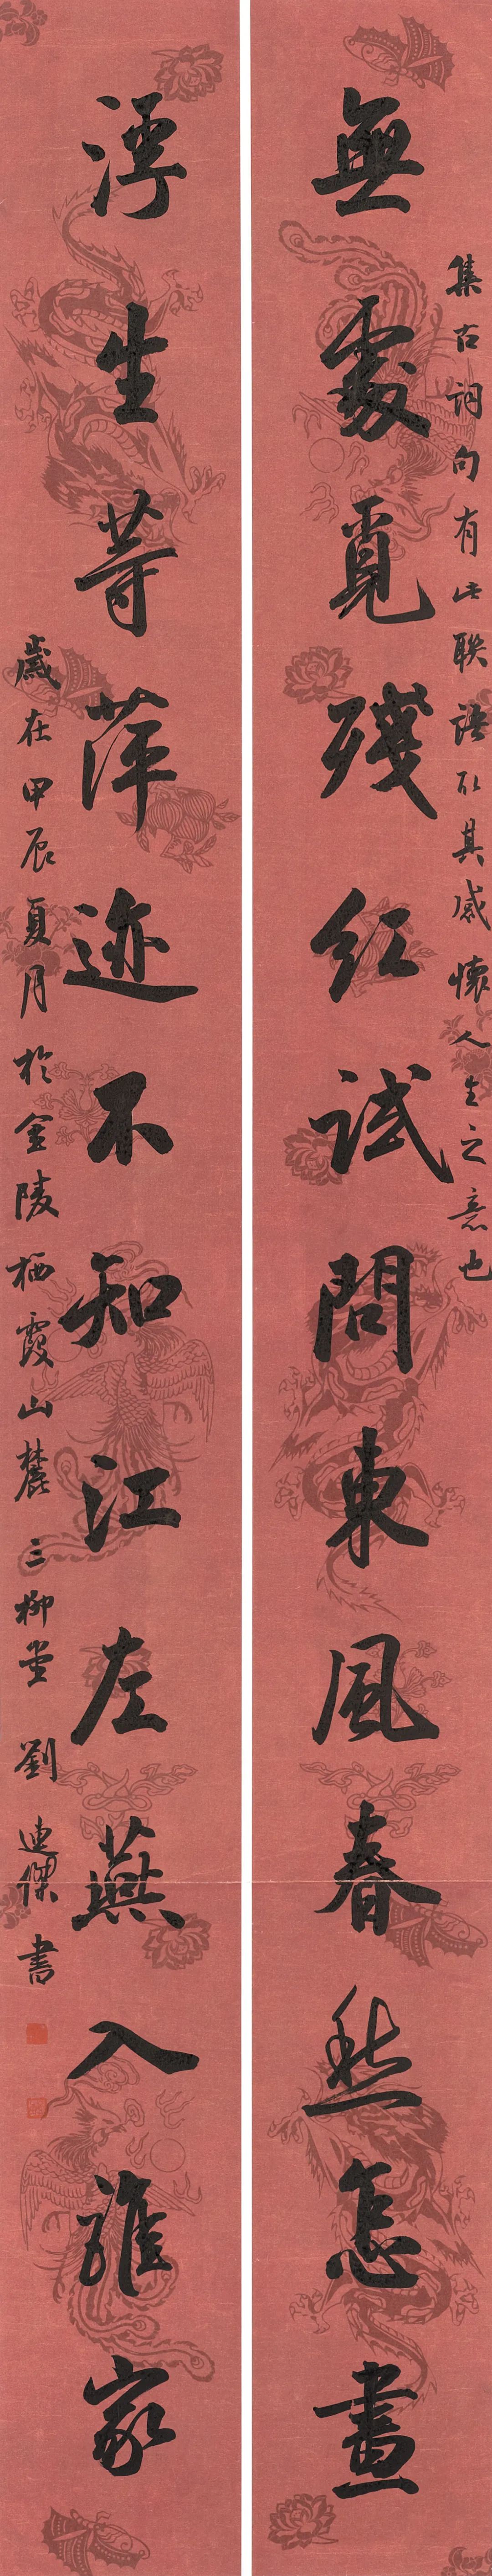 集古詞句有此聯語取其感懷人生之意也
無處覓殘紅試問東風春愁怎畫
浮生等萍迹不知江左燕入誰家
歲在甲辰夏月於金陵栖霞山麓三柳堂劉迪傑書